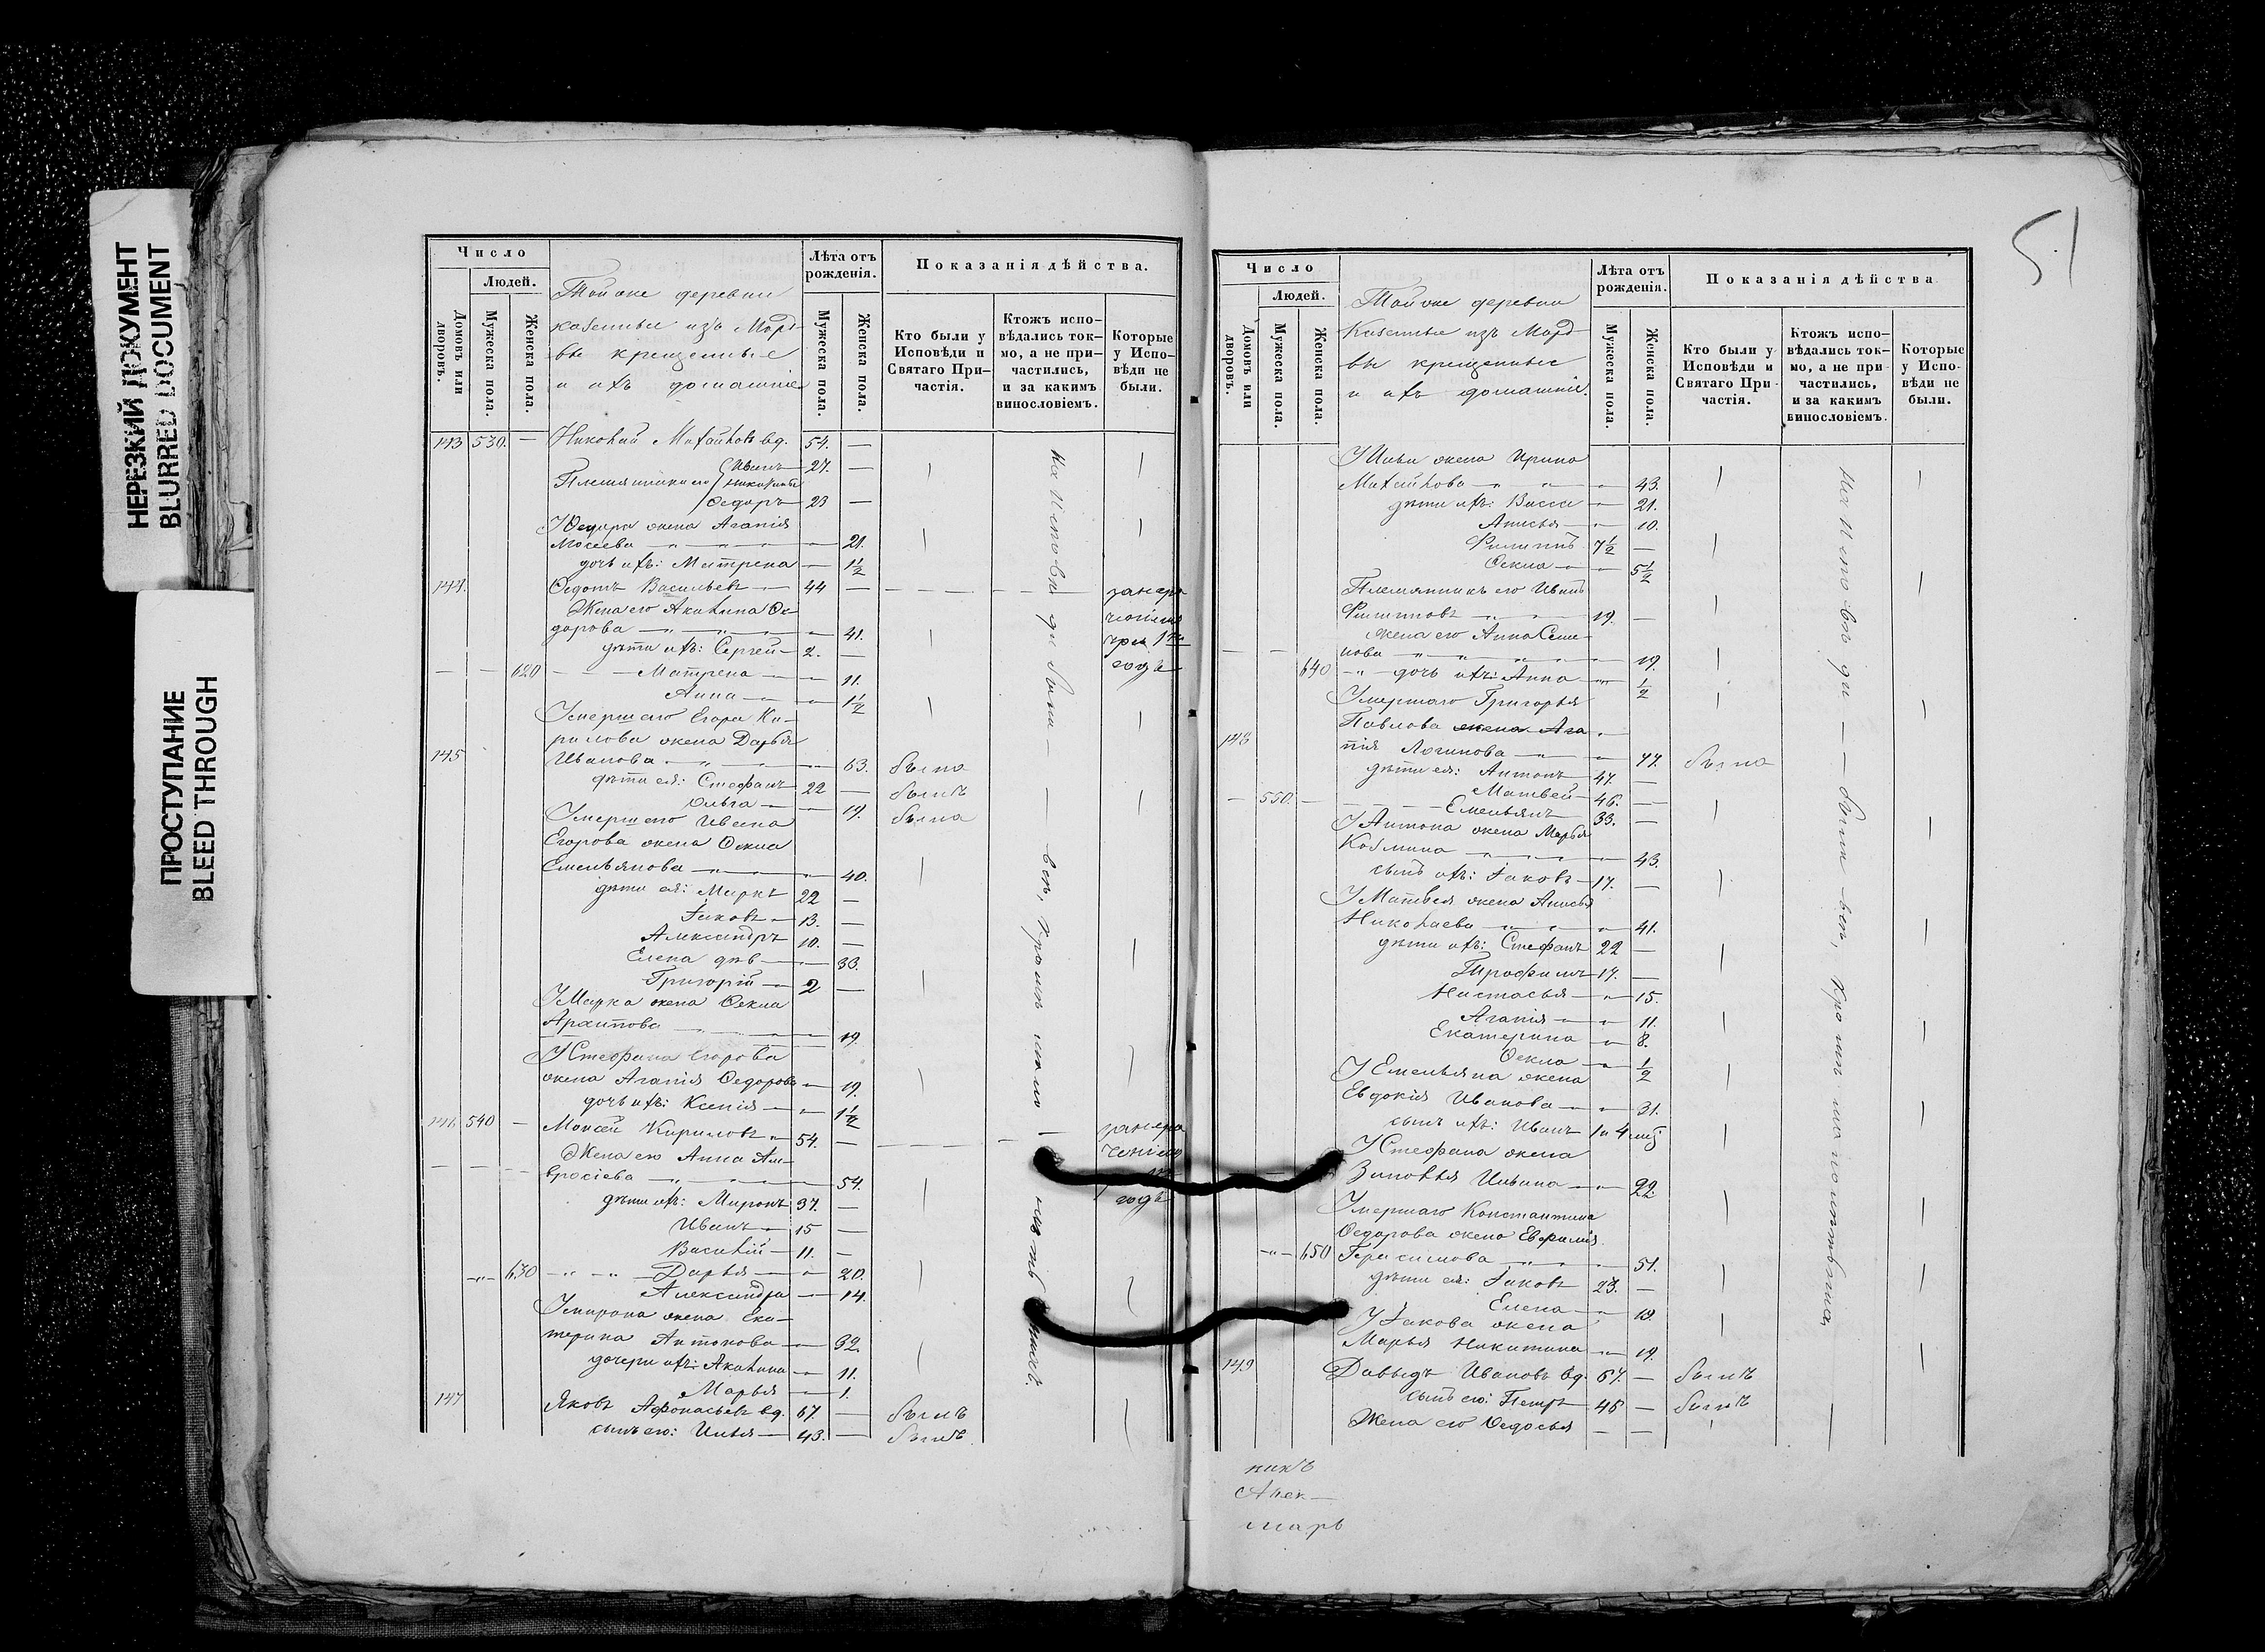 НЕРЕЗКИЙ ДОКУМЕНТ
BLURRED DOCUMENT
ПРОСТУПАНИЕ
BLEED THROUGH
Число
Людей.
Домовъ или дворовъ.
Мужеска пола.
Женска пола.
Тойже деревни
казенные изъ Морд-
вы крещенные
и ихъ домашніе
Лѣта отъ рожденія.
Мужеска пола.
Женска пола.
Показанія дѣйства.
Кто были у Исповѣди и Святаго При-частія.
Ктожъ испо-вѣдались ток-мо, а не при-частились, и за какимъ винословіемъ.
Которые у Испо-вѣди не были.
143 530. — Николай Михайловъ вд. 54. —
Иванъ 27. —
Племянники его
Ѳедоръ 23 —
У Ѳедора жена Агапія
Мосеева 21.
дочь ихъ: Матрена — 1½
144. Ѳедотъ Васильевъ — 44 —
Жена его Акилина Ѳе-
дорова 41.
дѣти ихъ: Сергей — 2. —
620 Матрена 11.
Анна 1½
года
Умершаго Егора Ки-
рилова жена Дарья
145 Иванова 63. была
дѣти ея: Стефанъ 22 — былъ
Ольга — 19. была
Умершаго Ивана
Егорова жена Ѳекла
Емельянова 40.
дѣти ея: Марко 22 —
Іаковъ 13. —
Александръ 10. —
Елена дѣв. 33.
Григорій 2 —
У Марка жена Ѳекла
Архипова 19
У Стефана Егорова
жена Агапія Ѳедорова 19.
дочь ихъ: Ксенія 1½
146 540 — Моисей Кириловъ 54. —
Жена его Анна Ам-
вросіева 54.
годъ
дѣти ихъ: Миронъ 37. —
Иванъ 15 —
Василій — 11. —
630 Дарья 20.
Александра 14.
У Мирона жена Ека-
терина Антонова 32.
дочери ихъ: Акилина 11.
Марья 1.
147 Яковъ Афонасьевъ вд. 67. — былъ
сынъ его: Илья 43. — былъ
На Исповѣди были всѣ, кромѣ
51
Число
Людей.
Домовъ или дворовъ.
Мужеска пола.
Женска пола.
Тойже деревни
Казенные изъ Морд-
вы крещенные
и ихъ домашніе.
Лѣта отъ рожденія.
Мужеска пола.
Женска пола.
Показанія дѣйства
Кто были у Исповѣди и Святаго При-частія.
Ктожъ испо-вѣдались ток-мо, а не при-частились, и за какимъ винословіемъ.
Которые у Испо-вѣди не были.
У Ильи жена Ирина
Михайлова 43.
дѣти ихъ: Васса 21.
Анисья 10.
Филиппъ 7½ —
Ѳекла 5½
Племянникъ его Иванъ
Филипповъ 19. —
жена его Анна Семе-
нова 19.
640 дочь ихъ: Анна ½
Умершаго Григорья
Павлова жена Ага-
148 пія Логинова 77. была
дѣти ея: Антонъ 47. —
Матвей 46. —
550. Емельянъ 33. —
У Антона жена Марья
Козмина 43.
сынъ ихъ: Іаковъ 17. —
У Матвея жена Анисья
Николаева 41.
дѣти ихъ: Стефанъ 22 —
Трофимъ 17. —
Настасья 15.
Агапія 11.
Екатерина 8.
Ѳекла ½
У Емельяна жена
Евдокія Иванова 31.
сынъ ихъ: Иванъ 1 и 4
У Стефана жена
Зиновья Ильина 22.
Умершаго Константина
Ѳедорова жена Евфимія
650 Герасимова 51.
дѣти ея: Іаковъ 23. —
Елена 13.
У Іакова жена
Марья Никитина 19.
149 Давыдъ Ивановъ вд. 67. — былъ
сынъ его: Петръ 48 — былъ
Жена его Ѳедосья — —
На Исповѣди были всѣ, кромѣ
никъ
Алек-
марь